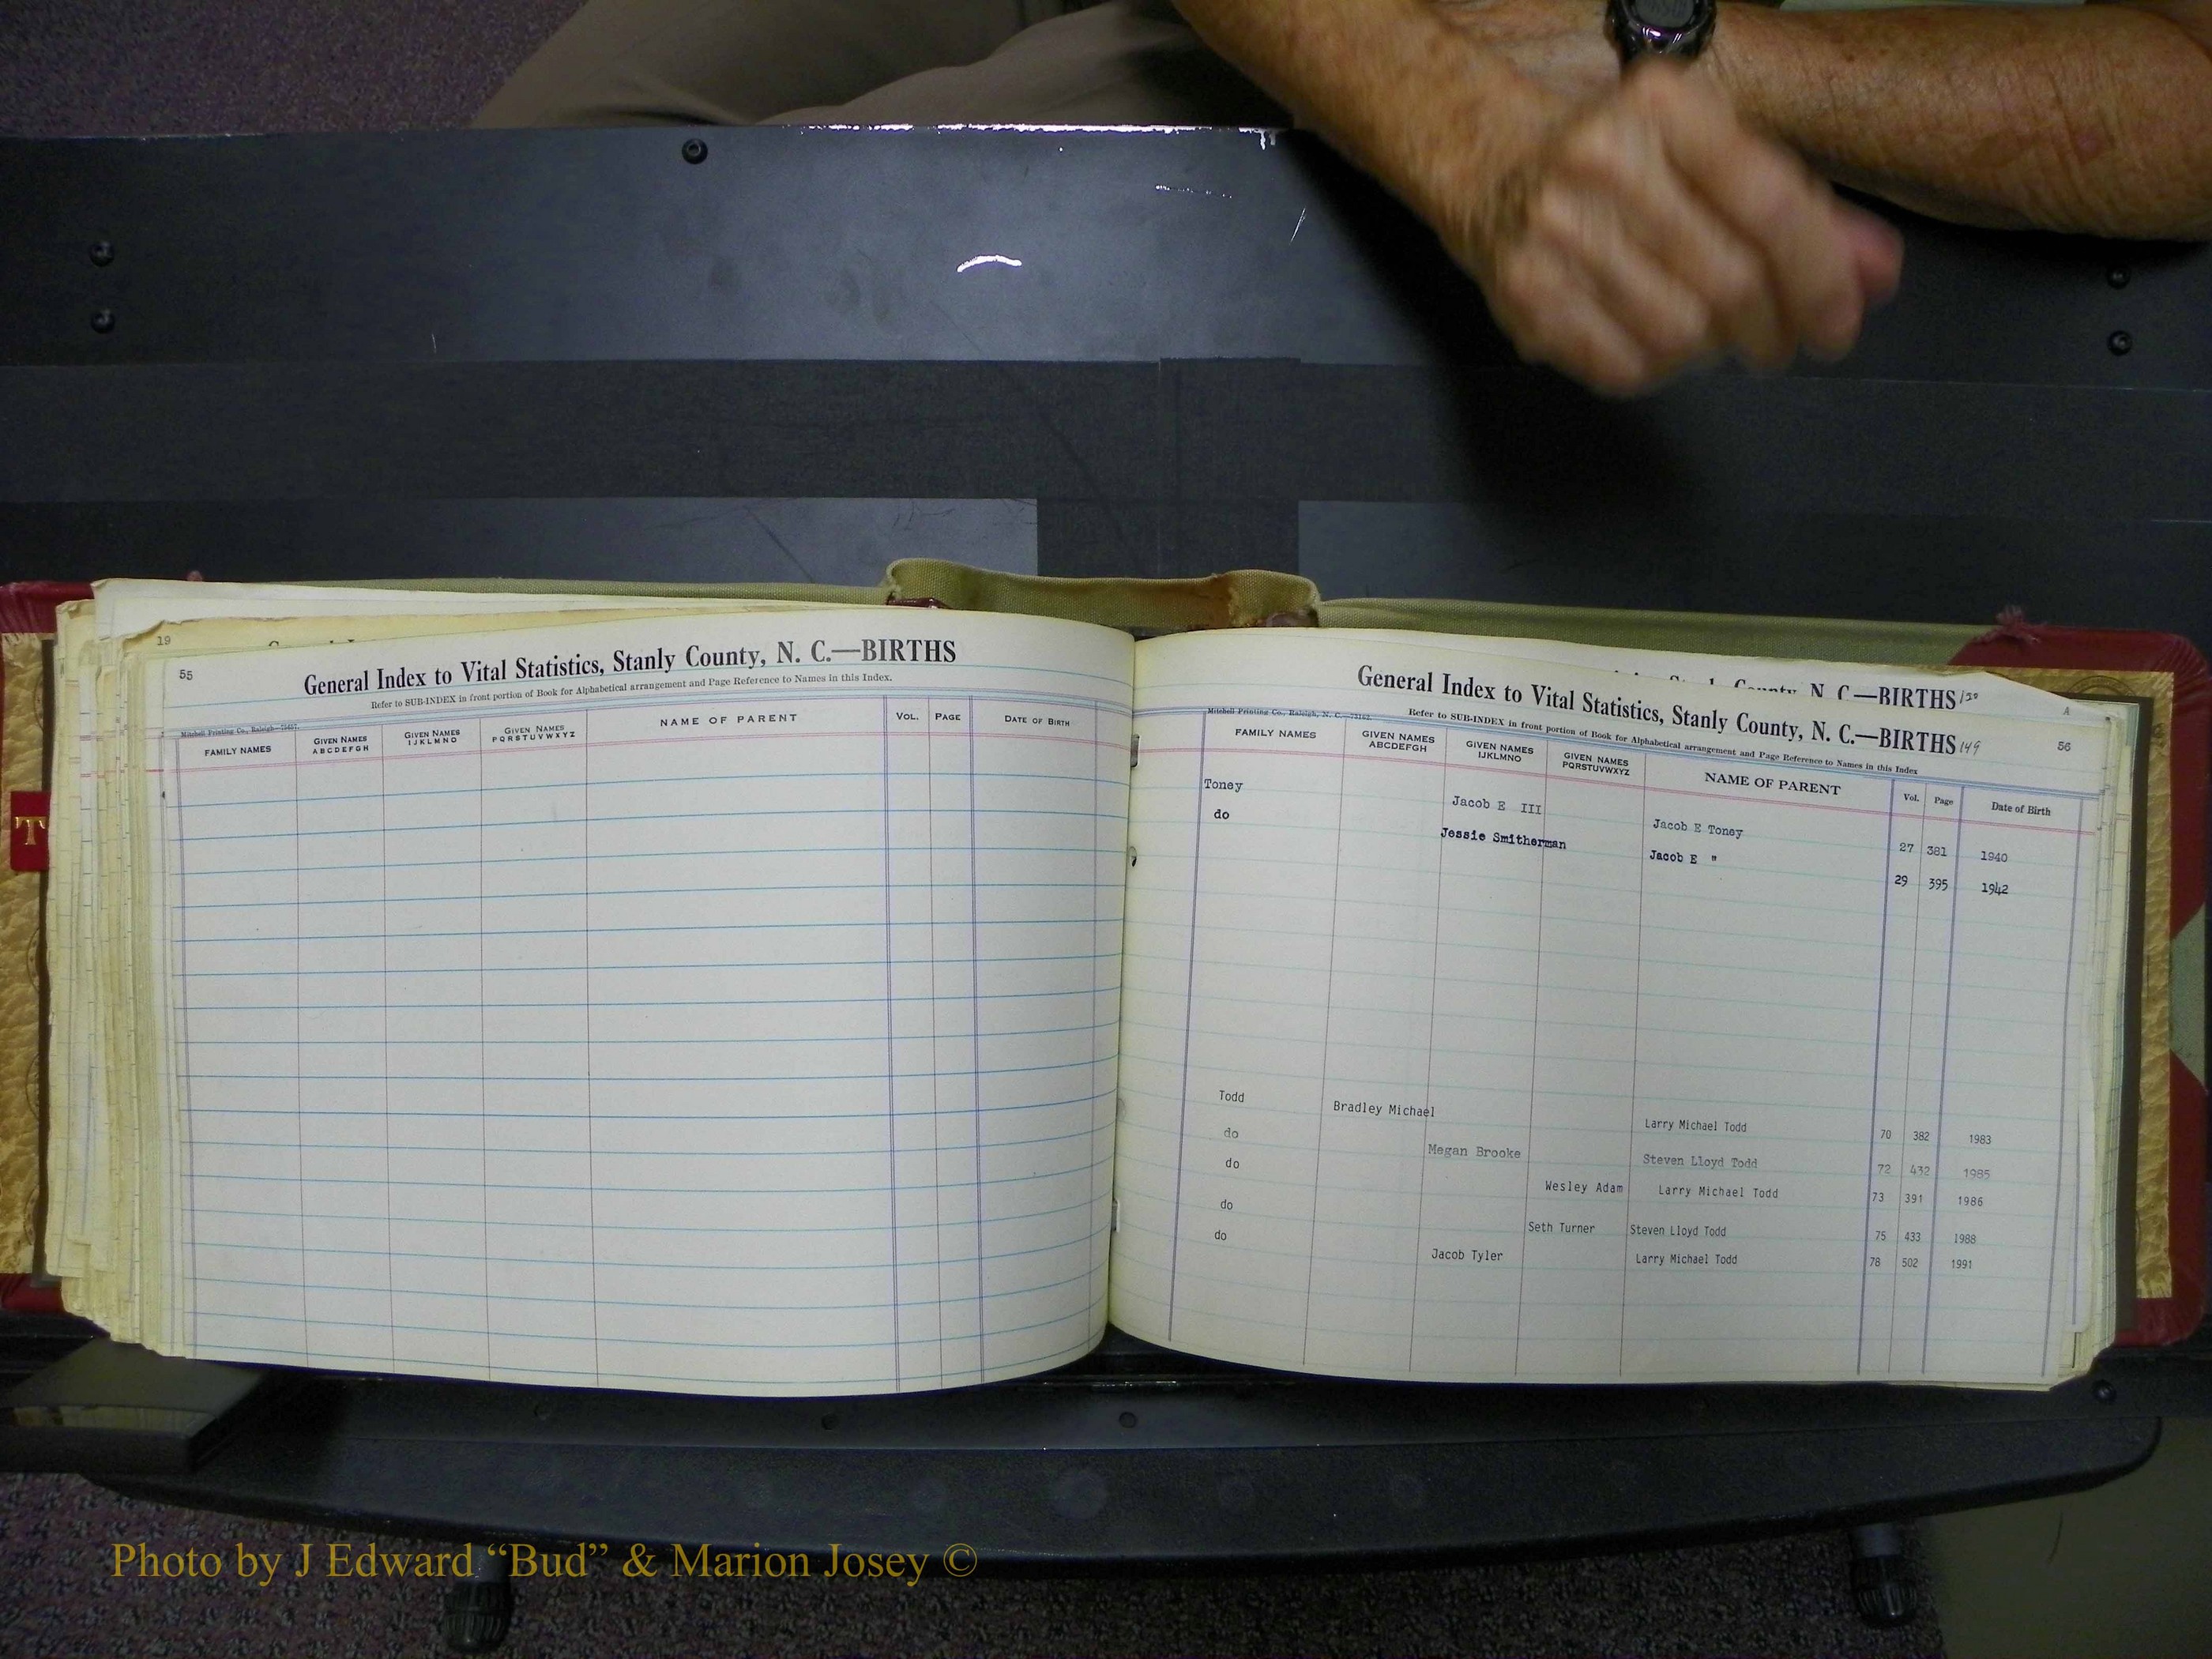 19
55
General Index to Vital Statistics, Stanly County, N. C.—BIRTHS
Refer to SUB-INDEX in front portion of Book for Alphabetical arrangement and Page Reference to Names in this Index.
Mitchell Printing Co., Raleigh
FAMILY NAMES GIVEN NAMES ABCDEFGH GIVEN NAMES IJKLMNO GIVEN NAMES PQRSTUVWXYZ NAME OF PARENT VOL. PAGE DATE OF BIRTH
T
County, N. C.—BIRTHS
A
General Index to Vital Statistics, Stanly County, N. C.—BIRTHS 149
56
Mitchell Printing Co., Raleigh, N. C.
Refer to SUB-INDEX in front portion of Book for Alphabetical arrangement and Page Reference to Names in this Index
FAMILY NAMES GIVEN NAMES ABCDEFGH GIVEN NAMES IJKLMNO GIVEN NAMES PQRSTUVWXYZ NAME OF PARENT Vol. Page Date of Birth
Toney Jacob E III Jacob E Toney 27 381 1940
do Jessie Smitherman Jacob E " 29 395 1942
Todd Bradley Michael Larry Michael Todd 70 382 1983
do Megan Brooke Steven Lloyd Todd 72 432 1985
do Wesley Adam Larry Michael Todd 73 391 1986
do Seth Turner Steven Lloyd Todd 75 433 1988
do Jacob Tyler Larry Michael Todd 78 502 1991
Photo by J Edward “Bud” & Marion Josey ©